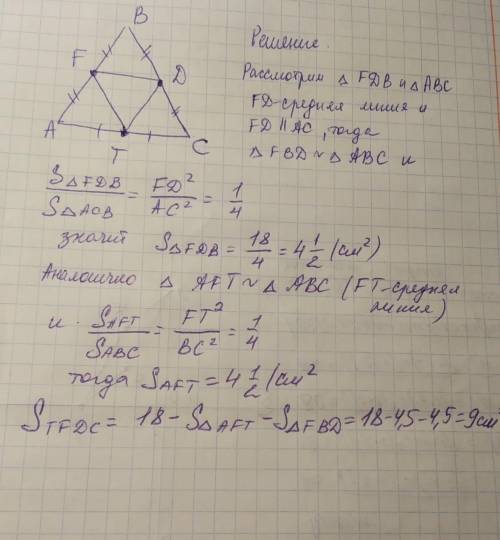 B
F
D
A
T
C
Решение.
Рассмотрим △ FDB и △ ABC
FD-средняя линия и
FD || AC, тогда
△ FBD ~ △ ABC и
S△FDB / S△ACB = FD² / AC² = 1/4
значит S△FDB = 18/4 = 4 1/2 (см²)
Аналогично △ AFT ~ △ ABC (FT-средняя
линия)
и. SAFT / SABC = FT² / BC² = 1/4
тогда SAFT = 4 1/2 (см²
STFDC = 18 - S△AFT - S△FBD = 18-4,5-4,5=9см²